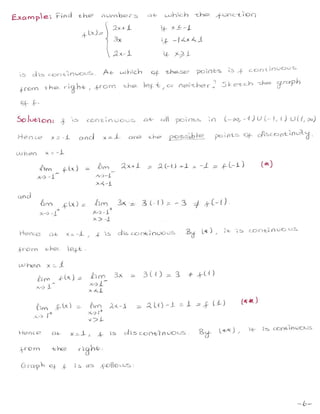 Example: Find the numbers at which the function
f(x) = { 2x+1 if x ≤ -1
3x if -1<x<1
2x-1 if x ≥ 1
is discontinuous. At which of these points is f continuous
from the right, from the left, or neither? Sketch the graph
of f.
Solution: f is continuous at all points in (-∞,-1)∪(-1,1)∪(1,∞)
Hence x=-1 and x=1 are the possible points of discontinuity.
When x=-1
lim x→-1⁻ f(x) = lim x→-1⁻ x<-1 2x+1 = 2(-1)+1 = -1 = f(-1) (*)
and
lim x→-1⁺ f(x) = lim x→-1⁺ x>-1 3x = 3(-1) = -3 ≠ f(-1)
Hence at x=-1, f is discontinuous By (*), it is continuous
from the left.
When x=1
lim x→1⁻ f(x) = lim x→1⁻ x<1 3x = 3(1) = 3 ≠ f(1)
lim x→1⁺ f(x) = lim x→1⁺ x>1 2x-1 = 2(1)-1 = 1 = f(1) (**)
Hence at x=1, f is discontinuous By (**), it is continuous
from the right.
Graph of f is as follows:
-6-